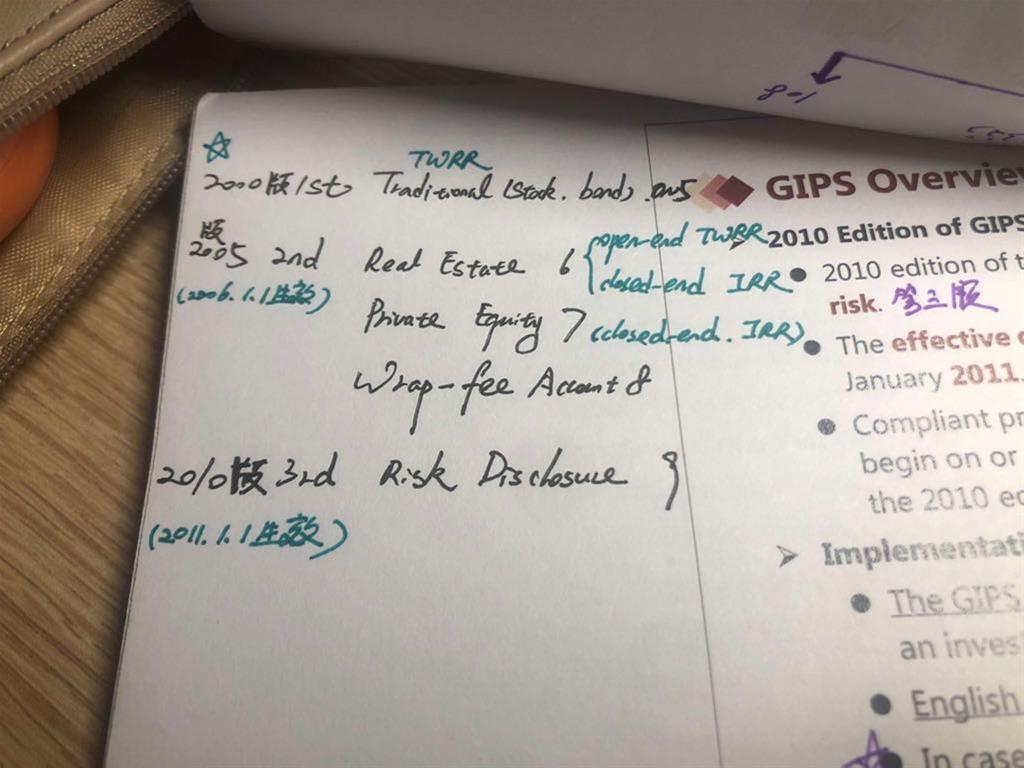 TWRR
2000版1st Traditional (Stock. bond).
2005版 2nd Real Estate 6 { open-end TWRR
closed-end IRR
(2006.1.1生效)
Private Equity 7 (closed-end. IRR)
Wrap-fee Account 8
2010版 3rd Risk Disclosure
(2011.1.1生效)
GIPS Overvie
2010 Edition of GIPS
2010 edition of t
risk. 第三版
The effective
January 2011.
Compliant pr
begin on or
the 2010 ed
Implementati
The GIPS
an inves
English
In case